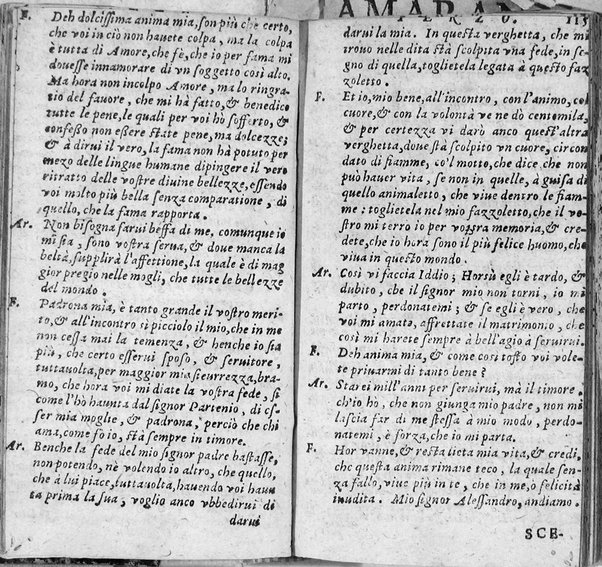 F. Deh dolcissima anima mia, son più che certo,
che voi in ciò non hauete colpa, ma la colpa
è tutta di Amore, che fè, che io per fama mi
douesse innamorare di vn soggetto così alto.
Ma hora non incolpo Amore, ma lo ringra-
tio del fauore, che mi hà fatto, & benedico
tutte le pene, le quali per voi hò sofferto, &
confesso non essere state pene, ma dolcezze;
& à dirui il vero, la fama non hà potuto per
mezo delle lingue humane dipingere il vero
ritratto delle vostre diuine bellezze, essendo
voi molto più bella senza comparatione, di
quello, che la fama rapporta.
Ar. Non bisogna farui beffa di me, comunque io
mi sia, sono vostra serua, & doue manca la
beltà, supplirà l'affettione, la quale è di mag
gior pregio nelle mogli, che tutte le bellezze
del mondo.
F. Padrona mia, è tanto grande il vostro meri-
to, & all'incontro sì picciolo il mio, che in me
non cessa mai la temenza, & benche io sia
più, che certo esserui sposo, & seruitore,
tuttauolta, per maggior mia sicurezza, bra-
mo, che hora voi mi diate la vostra fede, sì
come l'hò hauuta dal signor Partenio, di es-
ser mia moglie, & padrona, perciò che chi
ama, come fo io, stà sempre in timore.
Ar. Benche la fede del mio signor padre bastasse,
non potendo, nè volendo io altro, che quello,
che à lui piace, tuttauolta, hauendo voi hauu
ta prima la sua, voglio anco vbbedirui di
darui
AMARAN
115
darui la mia. In questa verghetta, che mi
trouo nelle dita stà scolpita vna fede, in se-
gno di quella, toglietela legata à questo faz
zoletto.
F. Et io, mio bene, all'incontro, con l'animo, co'l
cuore, & con la volontà ve ne dò centomila,
& per certezza vi darò anco quest'altra
verghetta, doue stà scolpito vn cuore, circon
dato di fiamme, co'l motto, che dice, che non
può hauer vita, se non in quelle, à guisa di
quello animaletto, che viue dentro le fiam-
me: toglietela nel mio fazzoletto, che il vo-
stro mi terro io per vostra memoria, & cre-
dete, che io hora sono il più felice huomo, che
viua in questo mondo.
Ar. Così vi faccia Iddio; Horsù egli è tardo, &
dubito, che il signor mio non torni, io mi
parto, perdonatemi; & se egli è vero, che
voi mi amate, affrettate il matrimonio, che
così mi harete sempre à bell'agio à seruirui.
F. Deh anima mia, & come così tosto voi vole-
te priuarmi di tanto bene?
Ar. Starei mill'anni per seruirui, mà il timore,
ch'io hò, che non giunga mio padre, non mi
lascia far di me stessa à mio modo, perdo-
natemi, è forza, che io mi parta.
F. Hor vanne, & resta lieta mia vita, & credi,
che questa anima rimane teco, la quale sen-
za fallo, viue più in te, che in me, ò felicità
inudita. Mio signor Alessandro, andiamo.
SCE-